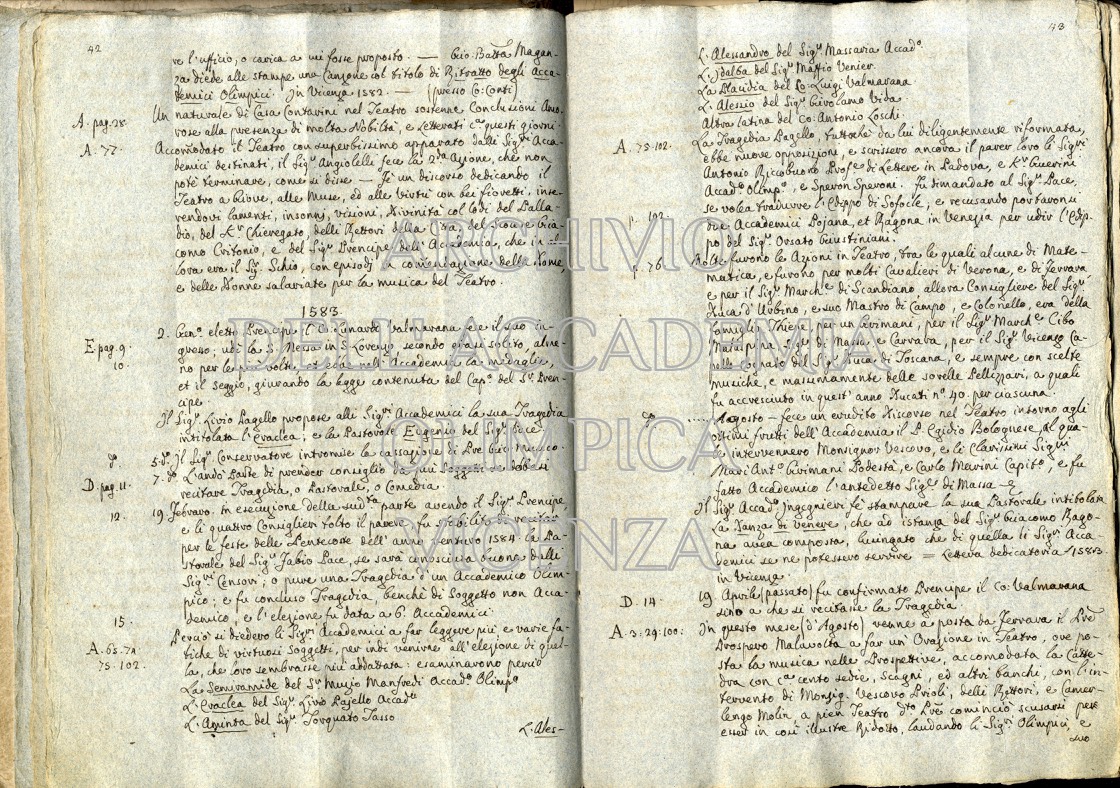 42
re l'ufficio, o carica a lui fosse proposto. — Gio: Batta Magan-
za diede alle stampe una Canzone col titolo di Ritratto degli Acca-
demici Olimpici. In Vicenza 1582. — (presso Co: Conti)
Un naturale di Casa Contarini nel Teatro sostenne Conclusioni Amo-
A. pag. 28.
rose alla presenza di molta Nobiltà, e Letterati ca questi giorni.
A. 77.
Accomodato il Teatro con superbissimo apparato dalli Sigri Acca-
demici destinati, il Sigr Angiolelli fece la 2da Azione, che non
poté terminare, come si disse — Fe un discorso dedicando il
Teatro a Giove, alle Muse, ed alle Virtù con bei fioretti, inse-
rendovi lamenti, insonnj, visioni, Divinità col Lodi del Palla-
dio, del Kr Chieregato, delli Rettori della Città, del Gia-
como Critonio, e del Sigr Prencipe dell'Accademia, che in al-
lora era il Sigr Schio, con episodj a comemorazione delle Nome,
e delle Donne salariate per la musica del Teatro.
1583.
2. Genn. eletto Prencipe il Co: Lunardo Valmarana fece il suo in-
E. pag. 9.
greso, udì la S. Messa in S. Lorenzo secondo era solito, alme-
10.
no per le più volte, et ebbe nell'Accademia la medaglia,
et il Seggio, giurando la legge contenuta del Capo del Sr Pren-
cipe.
Il Sigr Livio Pagello propose alli Sigri Academici la sua Tragedia
intitolata l'Eraclea; e la Pastorale Eugenio del Sigr Pace.
do
5. do Il Sigr Conservatore intromise la cassazione di Pre Gio: Musico.
D. pag. 11.
7. do L'andò Parte di prender consiglio da più Soggetti se debbesi
recitare Tragedia, o Pastorale, o Comedia.
12.
19. Febraro. In esecuzione della sudta parte avendo il Sigr Prencipe,
e li quattro Consiglieri tolto il parere fu stabilito di recitar
per le feste delle Pentecoste dell'anno venturo 1584: la Pa-
storale del Sigr Fabio Pace, se sarà conosciuta buona dalli
Sigri Censori; o pure una Tragedia d'un Accademico Olim-
pico: e fu concluso Tragedia, benché di Soggetto non Acca-
demico, e l'elezione fu data a 6. Accademici.
15.
Perciò si diedero li Sigri Academici a far leggere più, e varie fa-
A. 65. 71.
tiche di virtuosi Soggetti, per indi venirne all'elezione di quel-
75. 102.
la, che loro sembrasse più addattata: esaminavono perciò
La Semiramide del Sr Muzio Manfredi Accado Olimpo
L'Eraclea del Sigr Livio Pajello Accado
L'Aminta del Sigr Torquato Tasso
L'Ales-
43
L'Alessandro del Sigr Massaria Accado.
L'Idalba del Sigr Maffio Venier.
La Placidia del Co: Luigi Valmarana
L'Alessio del Sigr Girolamo Vida.
Altra latina del Co: Antonio Loschi.
A. 75. 102.
La Tragedia Pagello, tuttoche da lui diligentemente riformata,
ebbe nuove opposizioni, e scrissero ancora il parer loro li Sigri
Antonio Riccobuono Profe di Lettere in Padova, e Kr Guerini
Accado Olimpo, e Speron Speroni. Fu dimandato al Sigr Pace,
se volea tradurre l'Edippo di Sofocle, e recusando portaronsi
102.
due Accademici Pojana, et Ragona in Venezia per udir l'Edip-
po del Sigr Orsato Giustiniani.
76.
Molte furono le Azioni in Teatro, tra le quali alcune di Mate-
matica, e furono per molti Cavalieri di Verona, e di Ferrara
e per il Sigr Marche di Scandiano allora Consigliere del Sigr
Duca d'Urbino, e suo Mastro di Campo, e Colonello, era della
Famiglia Thiene, per un Grimani, per il Sigr Marche Cibo
Malaspina, Sigr di Massa, e Carrara, per il Sigr Vicenzo Ca-
pello Cognato del Sigr Duca di Toscana, e sempre con scelte
musiche, e massimamente delle sorelle Pellizzari, a quali
fu accresciuto in quest'anno Ducati no 40. per ciascuna.
do
.... Agosto — fece un erudito Discorso nel Teatro intorno agli
ottimi frutti dell'Accademia il P. Egidio Bolognese, al qua-
le intervennero Monsignor Vescovo, e li Clarissimi Sigri
Marc'Anto Grimani Podestà, e Carlo Marini Capito, e fu
fatto Accademico l'antedetto Sigr di Massa —
Il Sigr Accado Ingegnieri fè stampare la sua Pastorale intitolata
La Danza di Venere, che ad istanza del Sigr Giacomo Rago-
na avea composta, lusingato che di quella li Sigri Acca-
demici se ne potessero servire = Lettera dedicatoria 1583
in Vicenza.
D. 14.
19 Aprile (passato) fu confirmato Prencipe il Co: Valmarana
sino a che si recitasse la Tragedia.
A. 3. 29. 100.
In questo mese (d'Agosto) venne a posta da Ferrara il Pre
Prospero Malavolta a far un'Orazion in Teatro, ove po-
sta la musica nelle Prospettive, accomodata la Catte-
dra con ca cento sedie, scagni, ed altri banchi, con l'in-
tervento di Monsig. Vescovo Prioli, delli Rettori, e Camer-
lengo Molin a pien Teatro do Pre cominciò scusarsi per
esser in così illustre Ridotto, laudando li Sigri Olimpici, e
suo
ARCHIVIO
DELL'ACCADEMIA
OLIMPICA
VICENZA